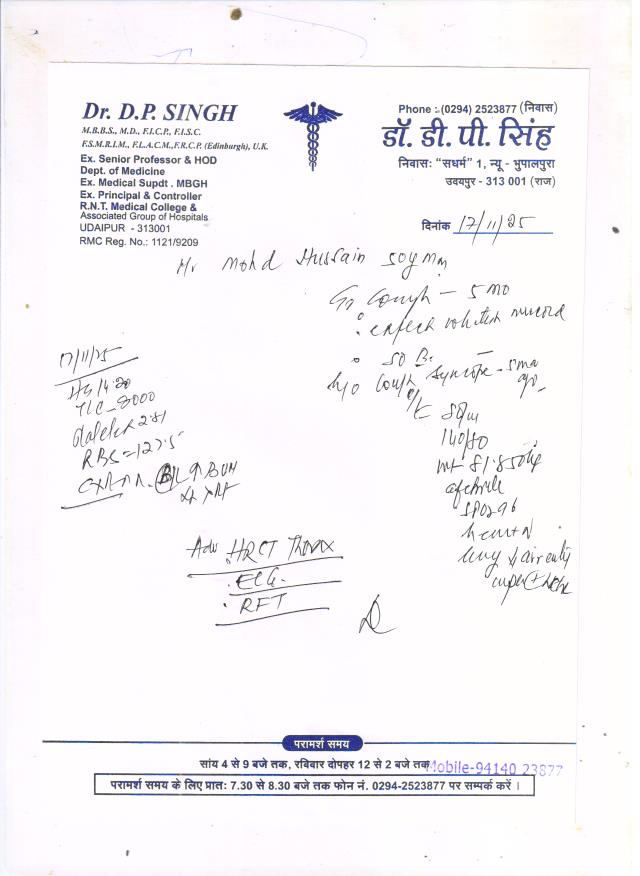 Dr. D.P. SINGH
M.B.B.S., M.D., F.I.C.P., F.I.S.C.
F.S.M.R.I.M., F.L.A.C.M.,F.R.C.P. (Edinburgh), U.K.
Ex. Senior Professor & HOD
Dept. of Medicine
Ex. Medical Supdt . MBGH
Ex. Principal & Controller
R.N.T. Medical College &
Associated Group of Hospitals
UDAIPUR - 313001
RMC Reg. No.: 1121/9209
Phone :-(0294) 2523877 (निवास)
डॉ. डी. पी. सिंह
निवासः "सधर्म" 1, न्यू - भुपालपुरा
उदयपुर - 313 001 (राज)
दिनांक 17/11/25
Mr Mohd Hussain 50y
Cough - 5 mo
whitish mucoid
SOB
h/o Cough Syncope - 5
80/m
140/80
wt 81.850kg
afebrile
SPO2 96
17/11/25
Hb 14.20
TLC - 8000
Platelet 2.81
RBS = 127.5
CXR
Adv HRCT Thorax
ECG
RFT
परामर्श समय
सांय 4 से 9 बजे तक, रविबार दोपहर 12 से 2 बजे तक
Mobile-94140 23877
परामर्श समय के लिए प्रातः 7.30 से 8.30 बजे तक फोन नं. 0294-2523877 पर सम्पर्क करें ।